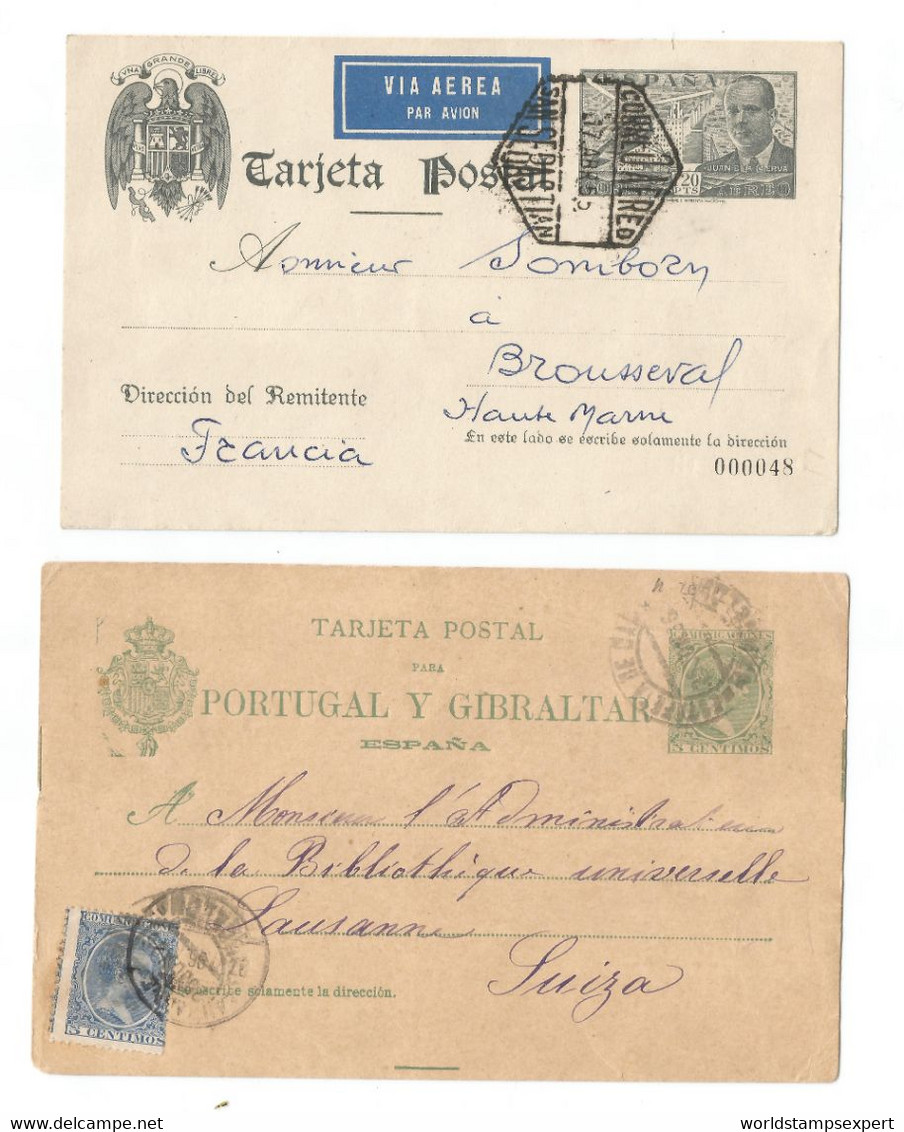 VNA GRANDE LIBRE
VIA AEREA
PAR AVION
ESPAÑA
Tarjeta Postal
CORREO AEREO
SAN SEBASTIAN
JUAN DE LA CIERVA
20
PTS
Monsieur Somborn
à
Brousseval
Dirección del Remitente
Haute Marne
Francia
En este lado se escribe solamente la dirección
000048
TARJETA POSTAL
PARA
PORTUGAL Y GIBRALTAR
ESPAÑA
COMUNICACIONES
5 CENTIMOS
A Monsieur l'Administrateur
de la Bibliothèque universelle
Lausanne
Suiza
COMUNICACIONES
5 CENTIMOS
escribe solamente la dirección.
delcampe.net
worldstampsexpert